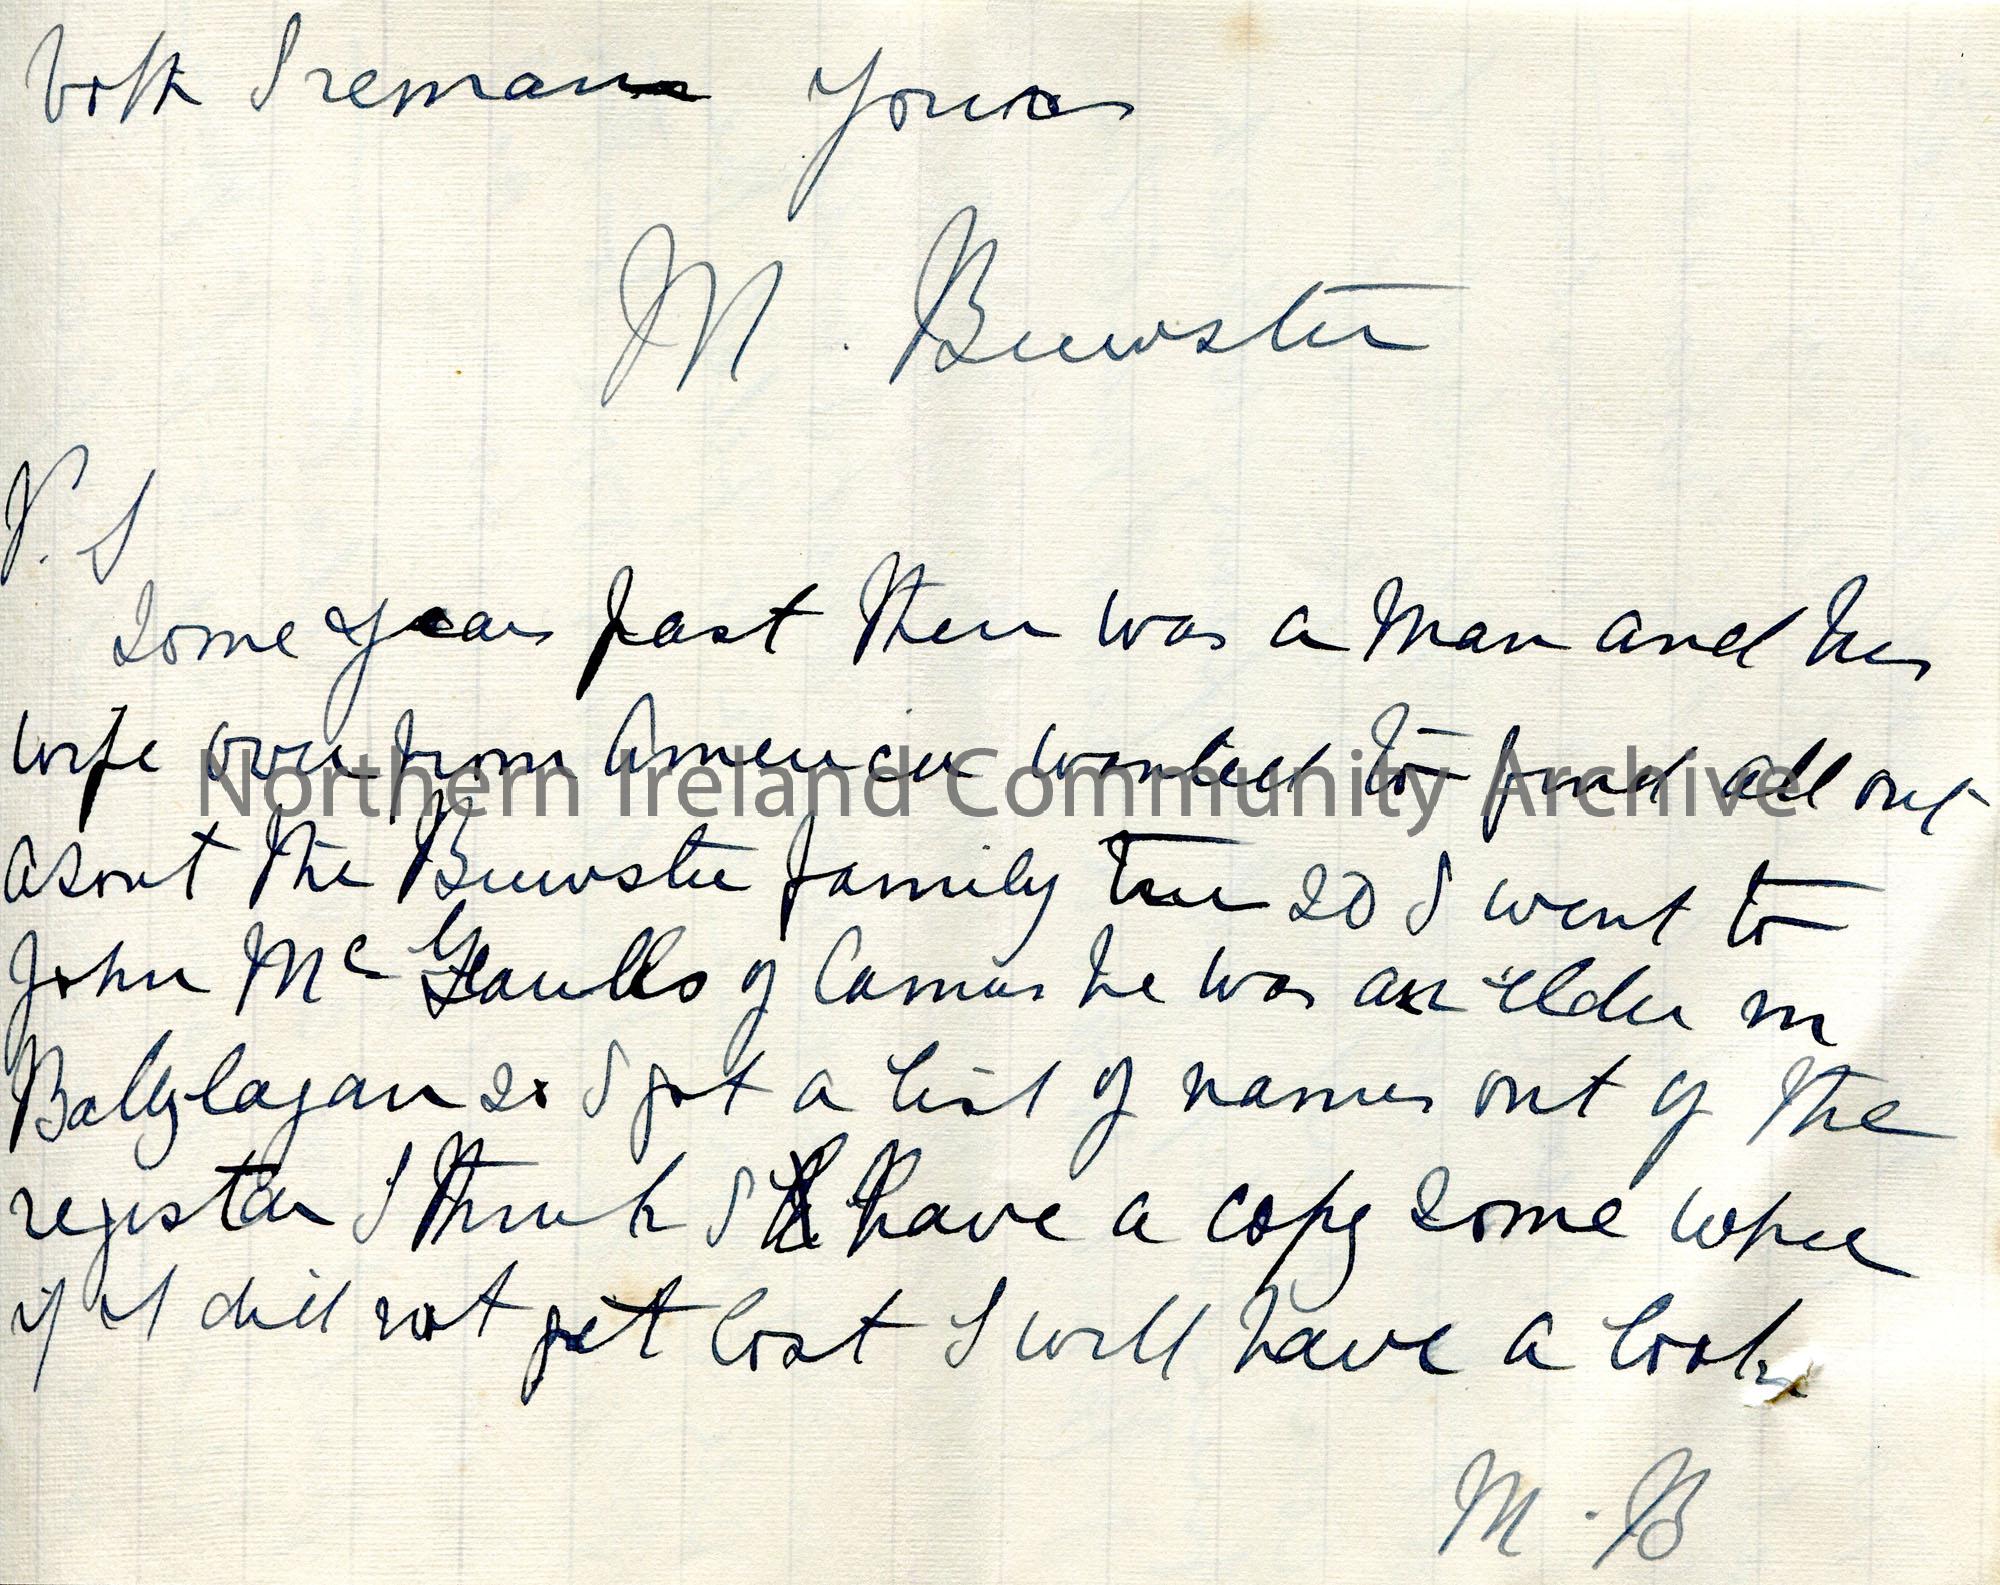 both I remain Yours
M. Brewster
P. S
Some years past there was a man and his
wife over from America wanted to find all out
Northern Ireland Community Archive
about the Brewster family tree so I went to
John Mc of Camus he was an elder in
Ballylagan so I got a list of names out of the
register I think I have a copy some where
if it did not get lost I will have a look
M. B